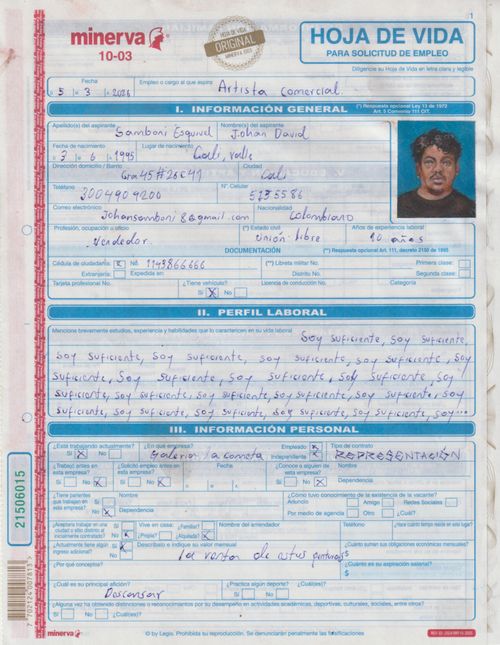 1
minerva
10-03
HOJA DE VIDA
ORIGINAL
MINERVA 1003
HOJA DE VIDA
PARA SOLICITUD DE EMPLEO
Diligencie su Hoja de Vida en letra clara y legible
Fecha
Empleo o cargo al que aspira
5 3 2026 Artista comercial.
I. INFORMACIÓN GENERAL
(*) Respuesta opcional Ley 13 de 1972
Art. 5 Convenio 111 OIT.
Apellido(s) del aspirante Nombre(s) del aspirante
Samboni Esquivel Johan David
Fecha de nacimiento Lugar de nacimiento
3 6 1995 Cali, valle
Dirección domicilio / Barrio Ciudad
Cra 45 #26C41 Cali
Teléfono N°. Celular
3004909200 5135586
Correo electrónico Nacionalidad
Johansamboni8@gmail.com Colombiano
Profesión, ocupación u oficio (*) Estado civil Años de experiencia laboral
Vendedor. Unión libre 10 años
DOCUMENTACIÓN (**) Respuesta opcional Art. 111, decreto 2150 de 1995
Cédula de ciudadanía: X Nº. 1143866666 (**) Libreta militar No. Primera clase:
Extranjería: Expedida en: Distrito No. Segunda clase:
Tarjeta profesional No. ¿Tiene vehículo? Licencia de conducción No. Categoría
Sí X No
II. PERFIL LABORAL
Mencione brevemente estudios, experiencia y habilidades que lo caractericen en su vida laboral
Soy suficiente, soy suficiente,
soy suficiente, soy suficiente, soy suficiente, soy suficiente, soy
suficiente, soy suficiente, soy suficiente, soy suficiente, soy
suficiente, soy suficiente, soy suficiente, soy suficiente, soy
suficiente, soy suficiente, soy suficiente, soy suficiente, soy...
III. INFORMACIÓN PERSONAL
¿Está trabajando actualmente? ¿En qué empresa? Empleado X Tipo de contrato
Sí X No Galería la cometa Independiente X REPRESENTACIÓN
¿Trabajó antes en esta empresa? ¿Solicitó empleo antes en esta empresa? Fecha ¿Conoce a alguien de esta empresa? Nombre
Sí No X Sí No X Sí X No Dependencia
¿Tiene parientes que trabajan en esta empresa? Nombre ¿Cómo tuvo conocimiento de la existencia de la vacante?
Anuncio Amigo Redes Sociales
Sí No X Dependencia Por medio de agencia Otro ¿Cuál?
¿Aceptaría trabajar en una ciudad o sitio distinto al inicialmente contratado? Vive en casa: ¿Familiar? Nombre del arrendador Teléfono ¿Hace cuánto tiempo reside en este lugar?
No X ¿Propia? ¿Alquilada? X
¿Actualmente tiene algún ingreso adicional? Descríbalo e indique su valor mensual ¿Cuánto suman sus obligaciones económicas mensuales?
la venta de estas pinturas $
¿Por qué conceptos? ¿Cuánto es su aspiración salarial?
$
¿Cuál es su principal afición? ¿Practica algún deporte? ¿Cuál(es)?
Descansar Sí No
¿Alguna vez ha obtenido distinciones o reconocimientos por su desempeño en actividades académicas, deportivas, culturales, sociales, entre otros?
Sí No ¿Cuál(es)?
minerva
© by Legis. Prohibida su reproducción. Se denunciarán penalmente las falsificaciones
21506015